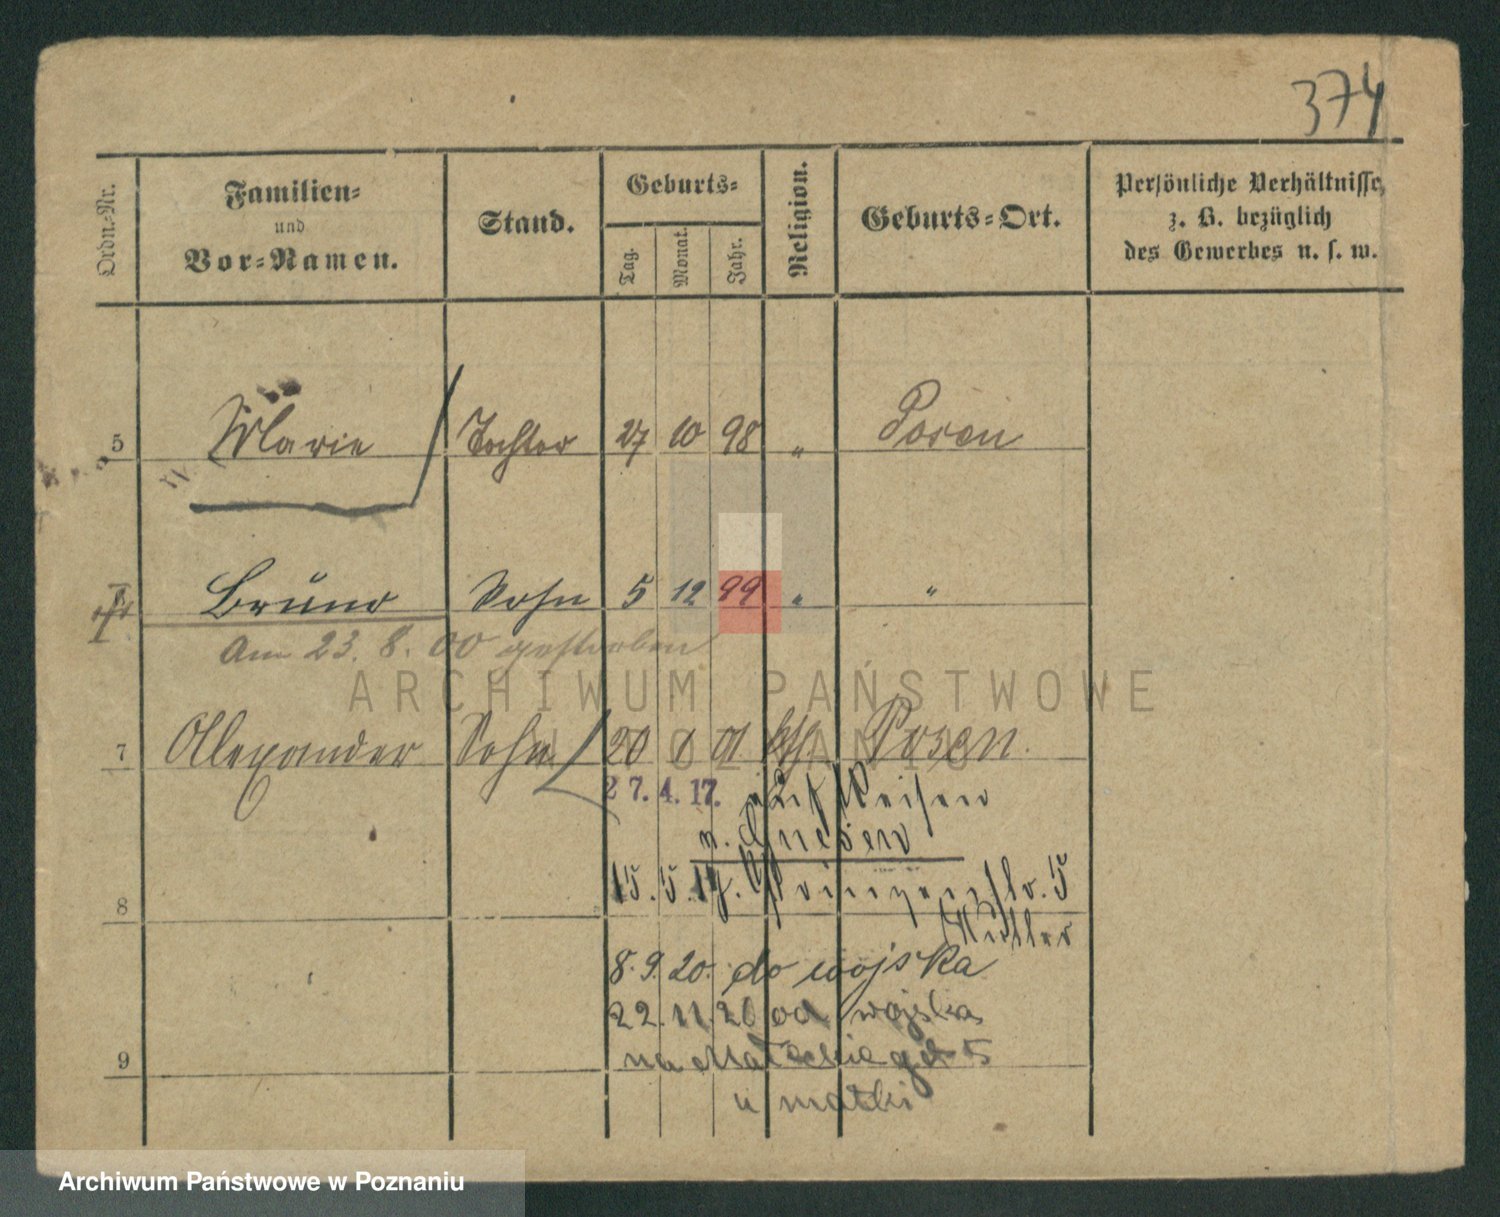 374
Ordn.-Nr.
Familien-
und
Vor-Namen.
Stand.
Geburts-
Tag.
Monat.
Jahr.
Religion.
Geburts-Ort.
Persönliche Verhältnisse,
z. B. bezüglich
des Gewerbes u. s. w.
5 Marie Tochter 27 10 98 " Posen
Bruno Sohn 5 12 99 " "
Am 23. 8. 00 gestorben
ARCHIWUM PAŃSTWOWE
W POZNANIU
7 Allexander Sohn 20 1 01 kth Posen.
27. 4. 17. auf Reisen
n. Gnesen
15. 5. 17. Prinzenstr. 5
8 Müller
8. 9. 20. do wojska
22. 11. 20 od wojska
9 na Małeckiego 5
u matki
Archiwum Państwowe w Poznaniu